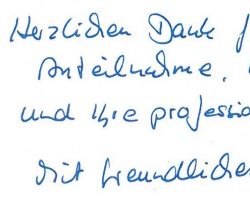 Herzlichen Dank f
Anteilnahme,
und Ihre professio
Mit freundlichen